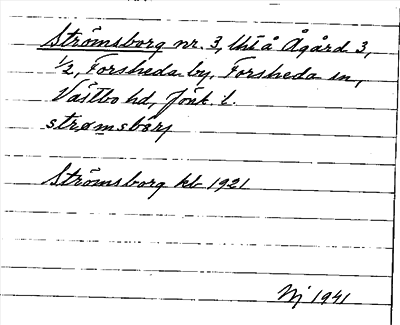 Strömsborg nr. 3, lht å Ågård 3,
1/2, Forsheda by, Forsheda sn,
Västbo hd, Jönk. l.
strømsbårj
Strömsborg kb 1921
Nj 1941